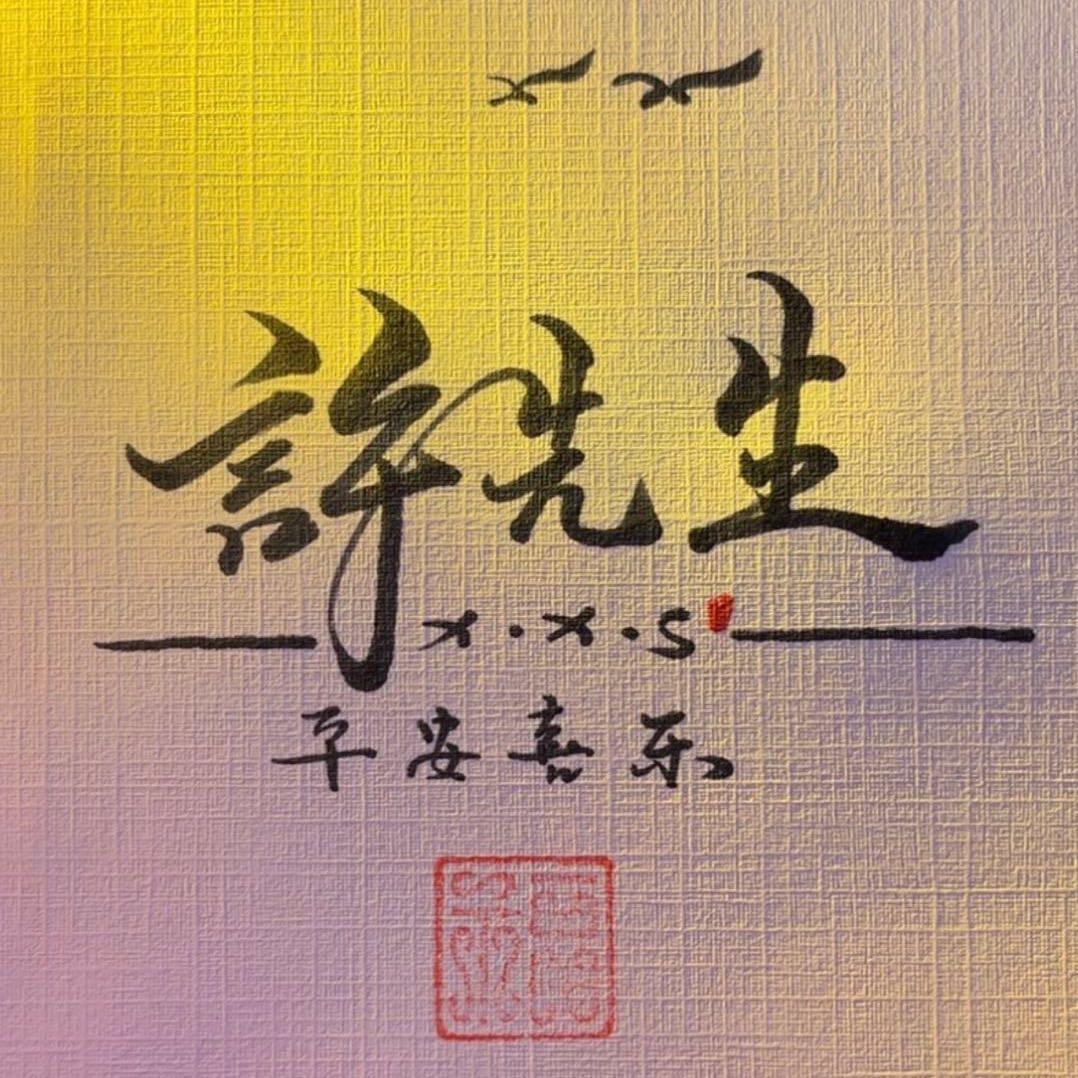 許先生
x·x·s
平安喜乐